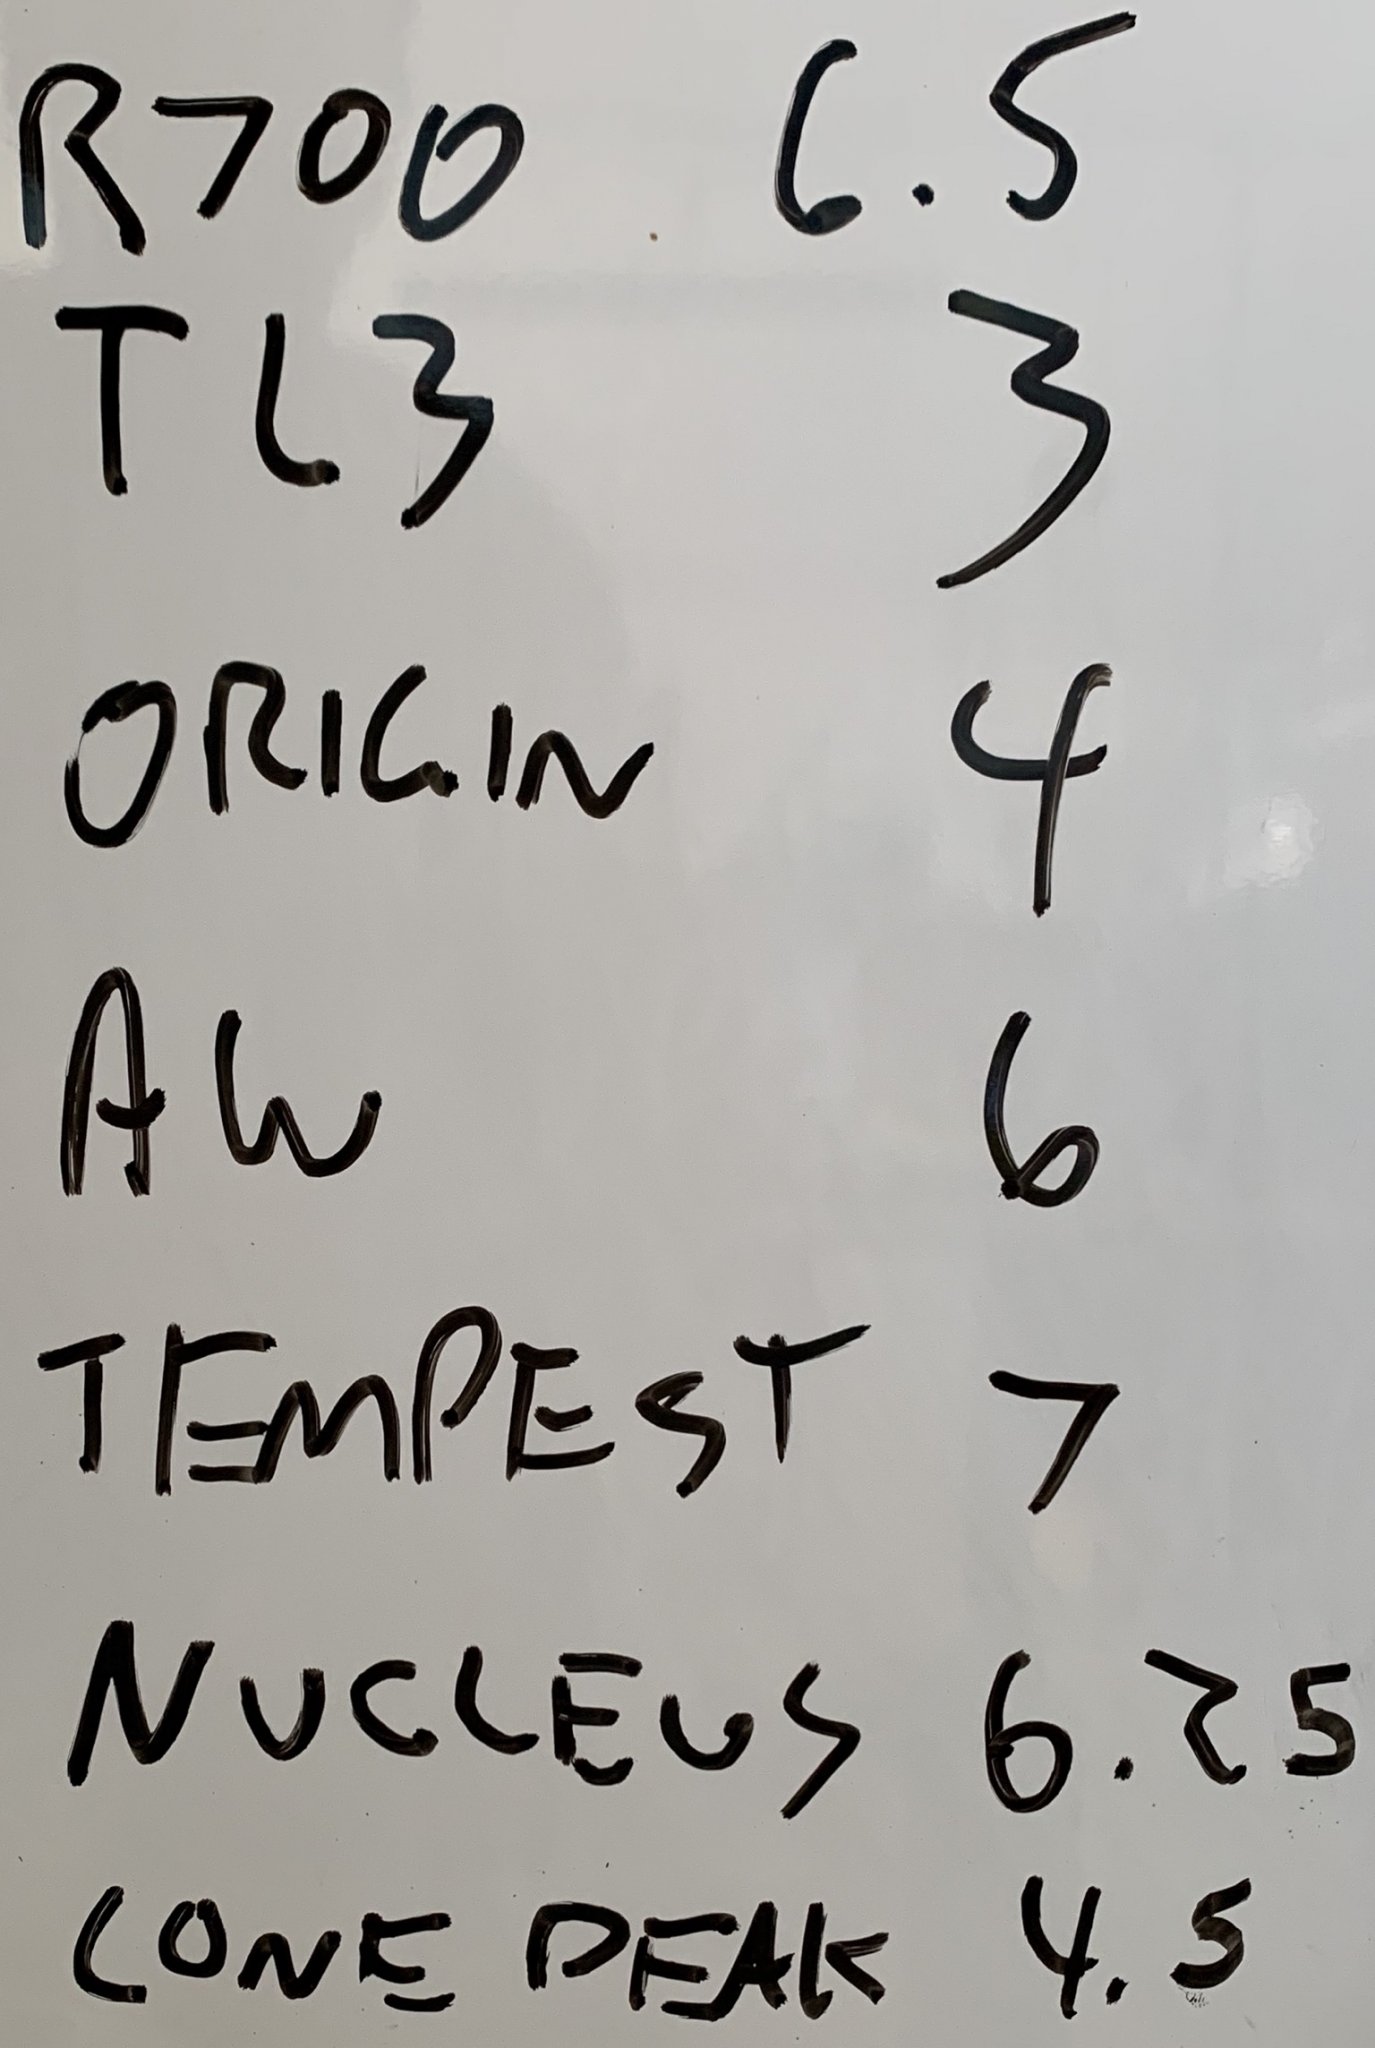 R700 6.5
TL3 3
ORIGIN 4
AW 6
TEMPEST 7
NUCLEUS 6.25
LONE PEAK 4.5